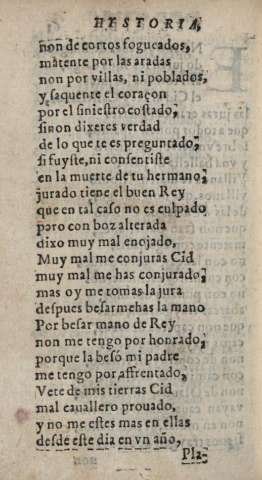 HESTORIA,
non de cortos fogueados,
mãtente por las aradas
non por villas, ni poblados,
y saquente el coraçon
por el siniestro costado;
sinon dixeres verdad
de lo que te es preguntado;
si fuyste, ni consentiste
en la muerte de tu hermano;
jurado tiene el buen Rey
que en tal caso no es culpado
pero con boz alterada
dixo muy mal enojado,
Muy mal me conjuras Cid
muy mal me has conjurado;
mas oy me tomas la jura
despues besarmehas la mano
Por besar mano de Rey
non me tengo por honrado;
porque la besò mi padre
me tengo por affrentado,
Vete de mis tierras Cid
mal cauallero prouado,
y no me estes mas en ellas
desde este dia en vn año,
Pla-